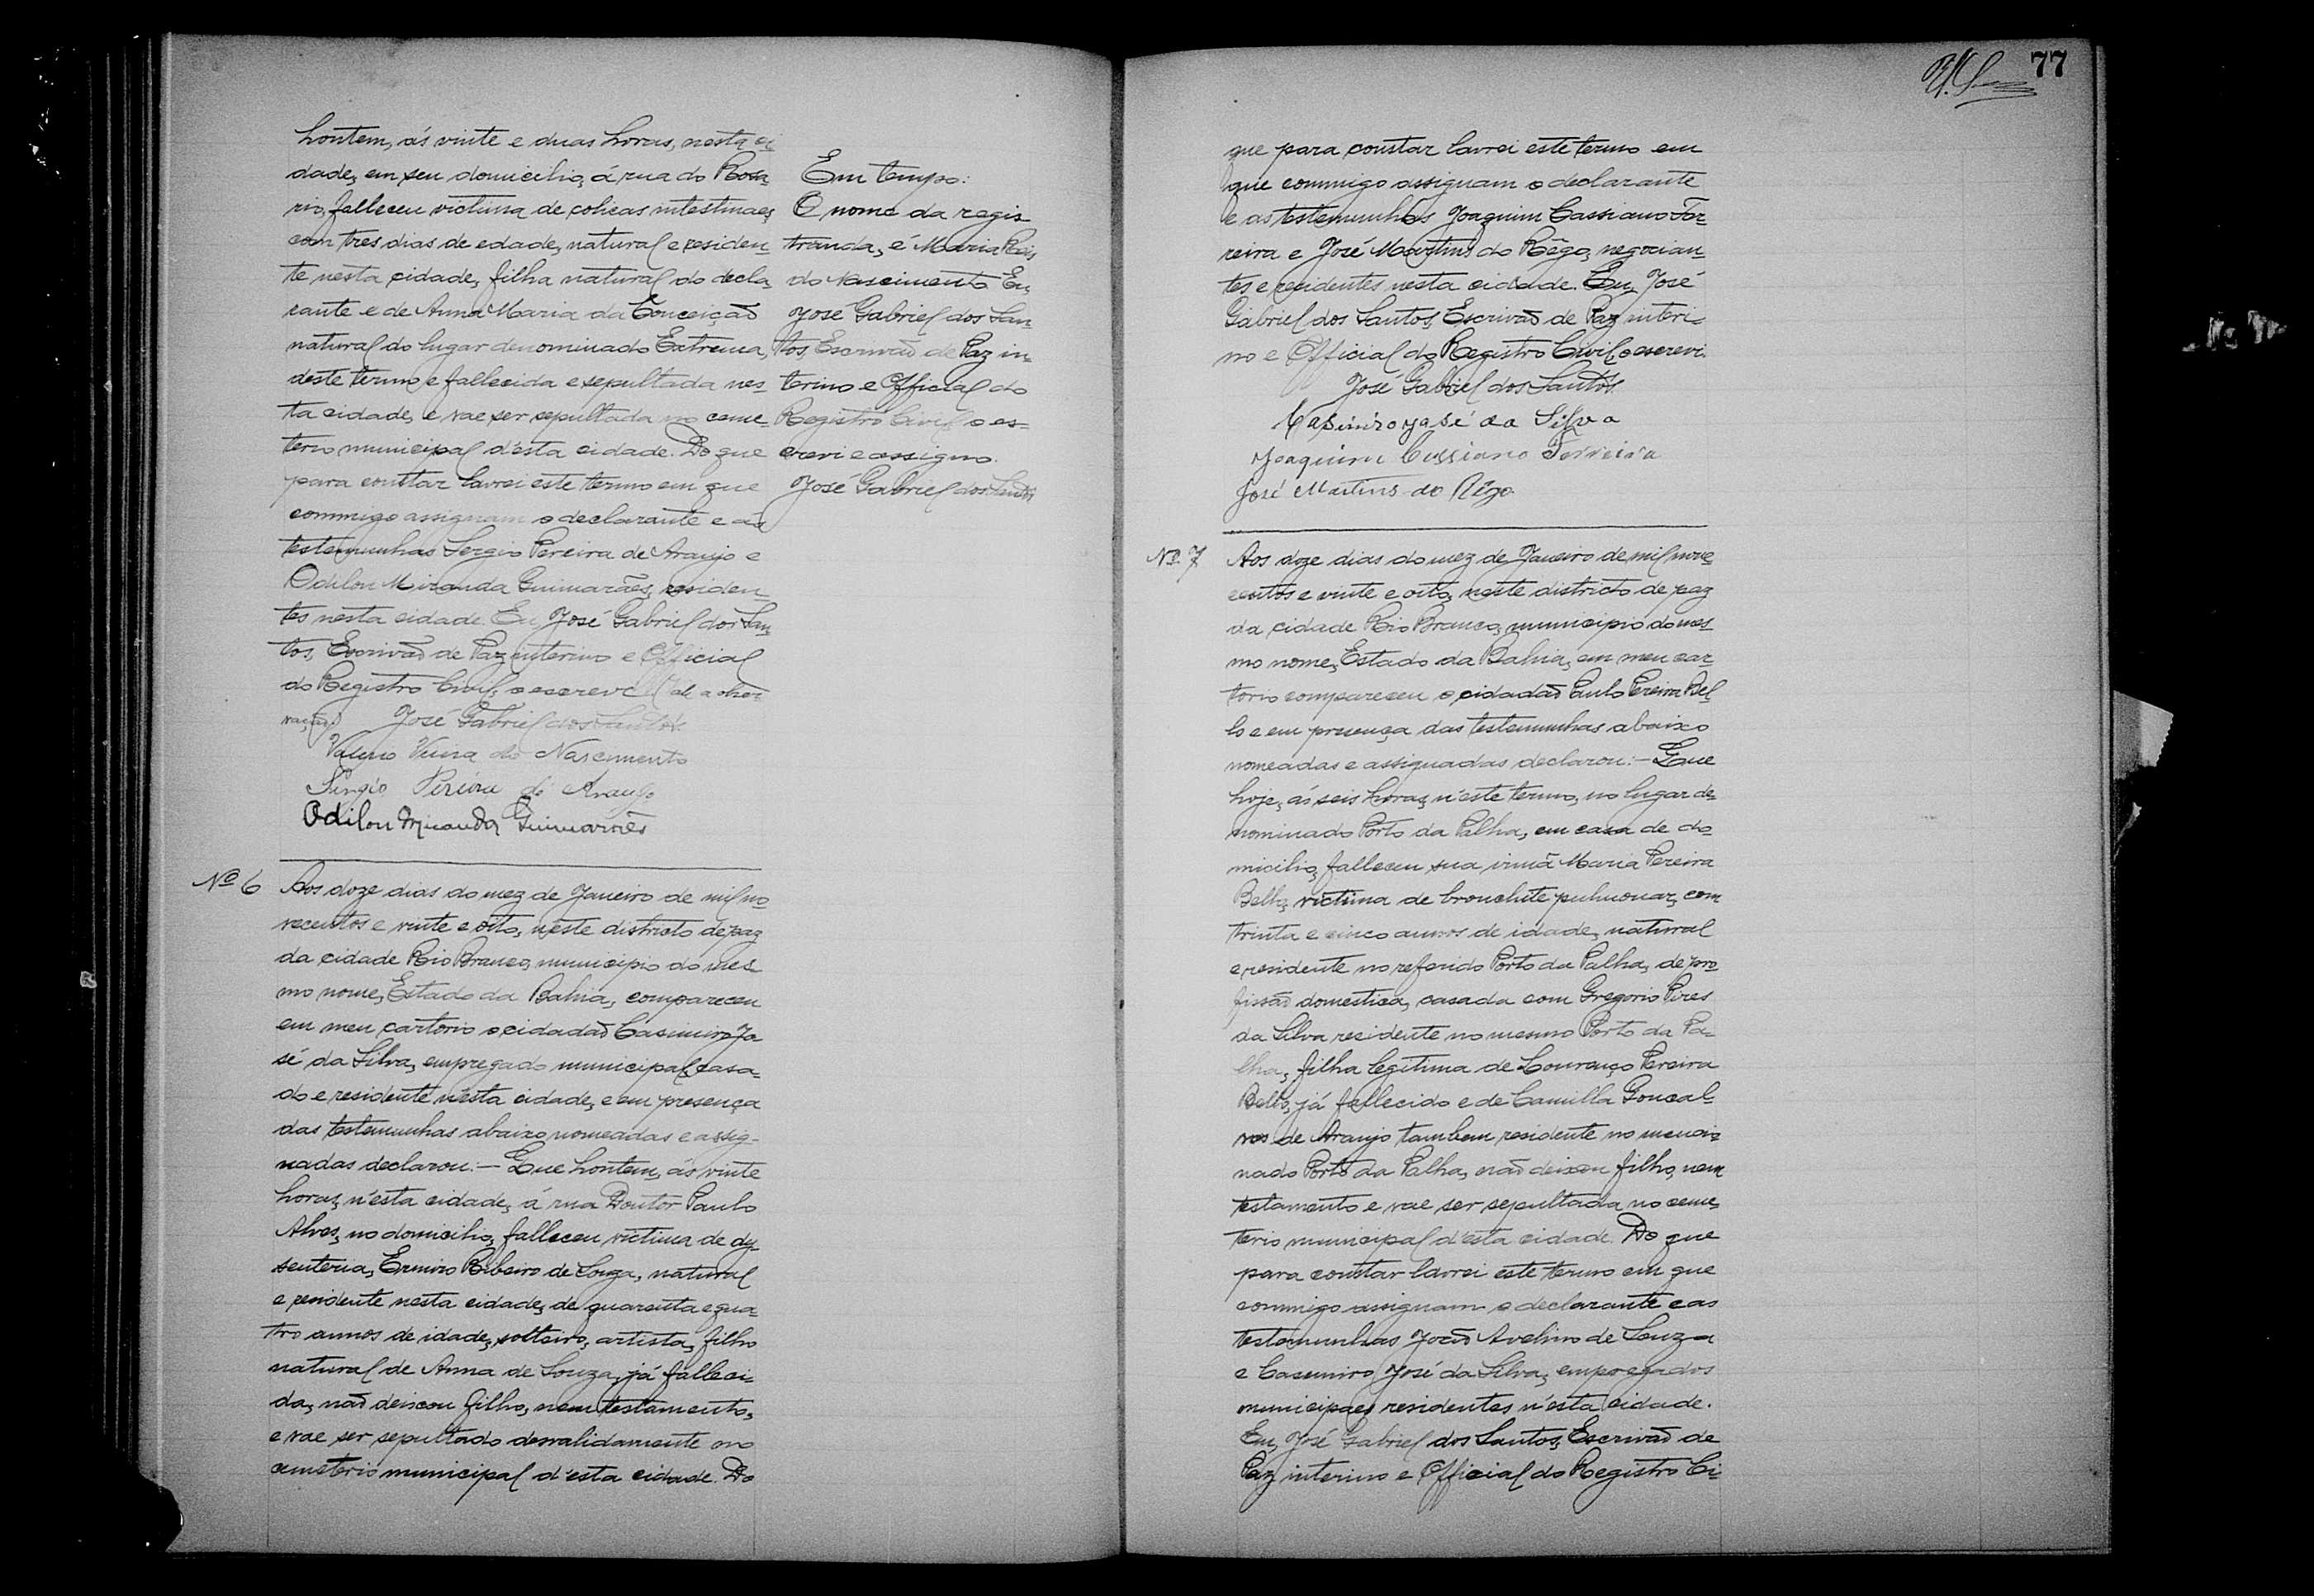 hontem, ás vinte e duas horas, nesta ci
dade, em seu domicilio, á rua do Rosa-
rio, falleceu victima de colicas intestinaes,
com tres dias de edade, natural e residen-
te nesta cidade, filha natural do decla-
rante e de Anna Maria da Conceição
natural do lugar denominado Extrema,
deste termo e fallecida e sepultada nes-
ta cidade, e vae ser sepultada no ceme-
terio municipal d'esta cidade. Do que
para constar lavrei este termo em que
commigo assignam o declarante e as
testemunhas Sergio Pereira de Araujo e
Odilon Miranda Guimarães, residen-
tes nesta cidade. Eu, José Gabriel dos San-
tos, Escrivão de Paz interino e Official
do Registro Civil, o escrevi
José Gabriel dos Santos.
Vieira do Nascimento
Sergio Pereira de Araujo
Odilon Miranda Guimarães
Em tempo:
O nome da regis
tranda, é Maria Reis
do Nascimento. Eu,
José Gabriel dos San-
tos, Escrivão de Paz in-
terino e Official do
Registro Civil, o es-
crevi e assigno.
José Gabriel dos Santos
Nº 6
Aos doze dias do mez de Janeiro de mil no-
vecentos e vinte e oito, neste districto de paz
da cidade Rio Branco, municipio do mes-
mo nome, Estado da Bahia, compareceu
em meu cartorio o cidadão Casimiro Jo
sé da Silva, empregado municipal, casa-
do e residente n'esta cidade, e em presença
das testemunhas abaixo nomeadas e assig-
nadas declarou:- Que hontem, ás vinte
horas, n'esta cidade, á rua Doutor Paulo
Alves, no domicilio, falleceu victima de dy
senteria, Ermiro Ribeiro de Souza, natural
e residente nesta cidade, de quarenta e qua-
tro annos de idade, solteiro, artista, filho
natural de Anna de Souza, já falleci-
da, não deixou filho, nem testamento,
e vae ser sepultado desvalidamente no
cemeterio municipal d'esta cidade. Do
77
que para constar lavrei este termo em
que commigo assignam o declarante
e as testemunhas Joaquim Cassiano Fer-
reira e José Martins do Rêgo, negocian-
tes e residentes nesta cidade. Eu, José
Gabriel dos Santos, Escrivão de Paz interi-
no e Official do Registro Civil, o escrevi.
José Gabriel dos Santos.
Casimiro José da Silva
Joaquim Cassiano Ferreira
José Martins do Rêgo.
Nº 7
Aos doze dias do mez de Janeiro de mil nove-
centos e vinte e oito, neste districto de paz
da cidade Rio Branco, municipio do mes-
mo nome, Estado da Bahia, em meu car-
torio compareceu o cidadão Paulo Pereira Bel-
lo e em presença das testemunhas abaixo
nomeadas e assignadas declarou:- Que
hoje, ás seis horas, n'este termo, no lugar de-
nominado Porto da Palha, em casa de do
micilio, falleceu sua irmã Maria Pereira
Bello, victima de bronchite pulmonar, com
trinta e cinco annos de idade, natural
e residente no referido Porto da Palha, de pro-
fissão domestica, casada com Gregorio Pires
da Silva residente no mesmo Porto da Pa-
lha, filha legitima de Lourenço Pereira
Bello, já fallecido e de Camilla Gonçal-
ves de Araujo tambem residente no mencio-
nado Porto da Palha, não deixou filho, nem
testamento e vae ser sepultada no ceme-
terio municipal d'esta cidade. Do que
para constar lavrei este termo em que
commigo assignam o declarante e as
testemunhas João Avelino de Souza
e Casemiro José da Silva, empregados
municipaes residentes n'esta cidade.
Eu, José Gabriel dos Santos, Escrivão de
Paz interino e Official do Registro Ci-